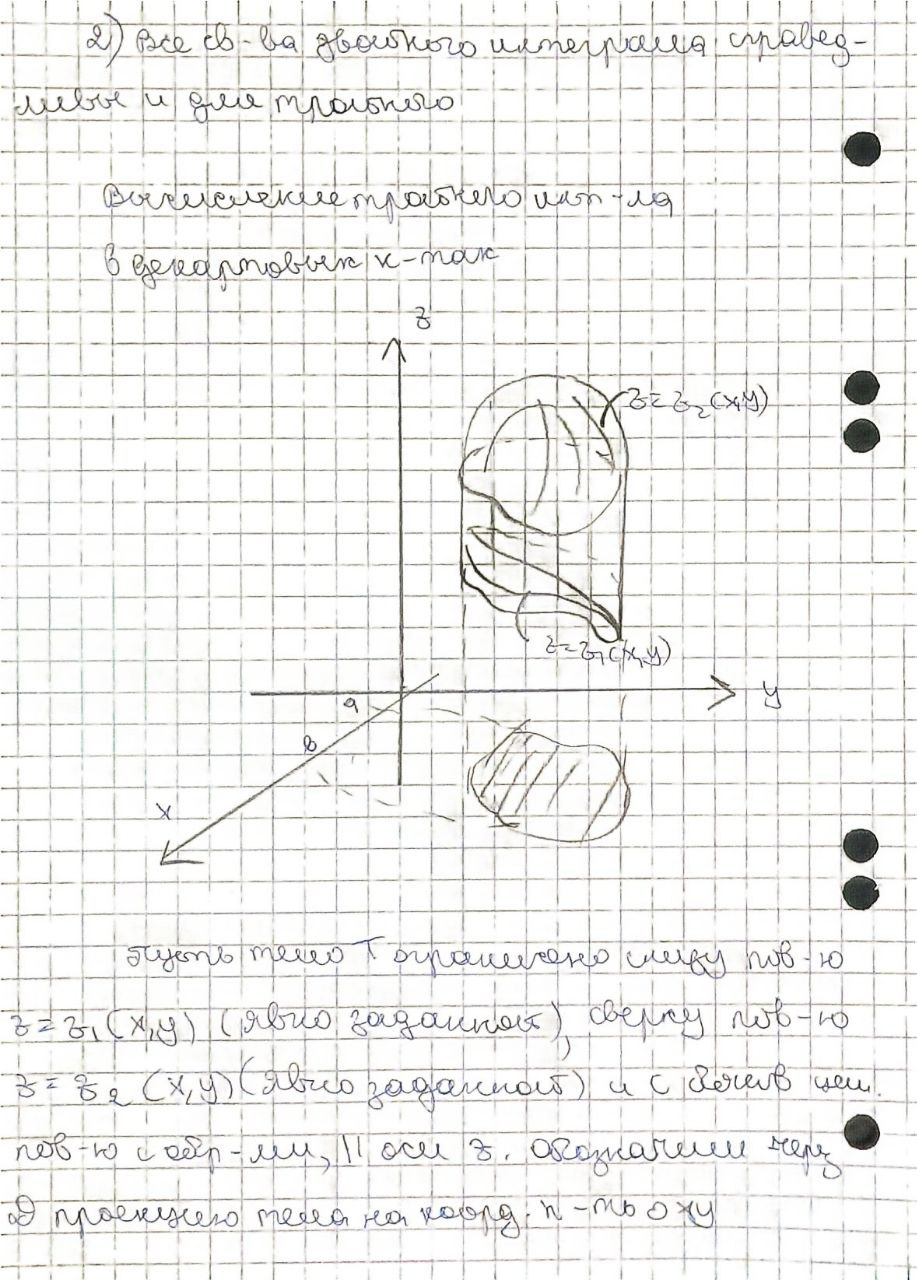 2) Все св-ва двойного интеграла справед-
ливы и для тройного
Вычисление тройного инт-ла
в декартовых к-тах
z
z=z₂(x,y)
z=z₁(x,y)
y
a
b
x
Пусть тело T ограничено снизу пов-ю
z=z₁(x,y) (явно заданной), сверху пов-ю
z=z₂(x,y) (явно заданной) и с боков цил.
пов-ю с обр-ми, || оси z. обозначим через
D проекцию тела на коорд. п-ть oxy